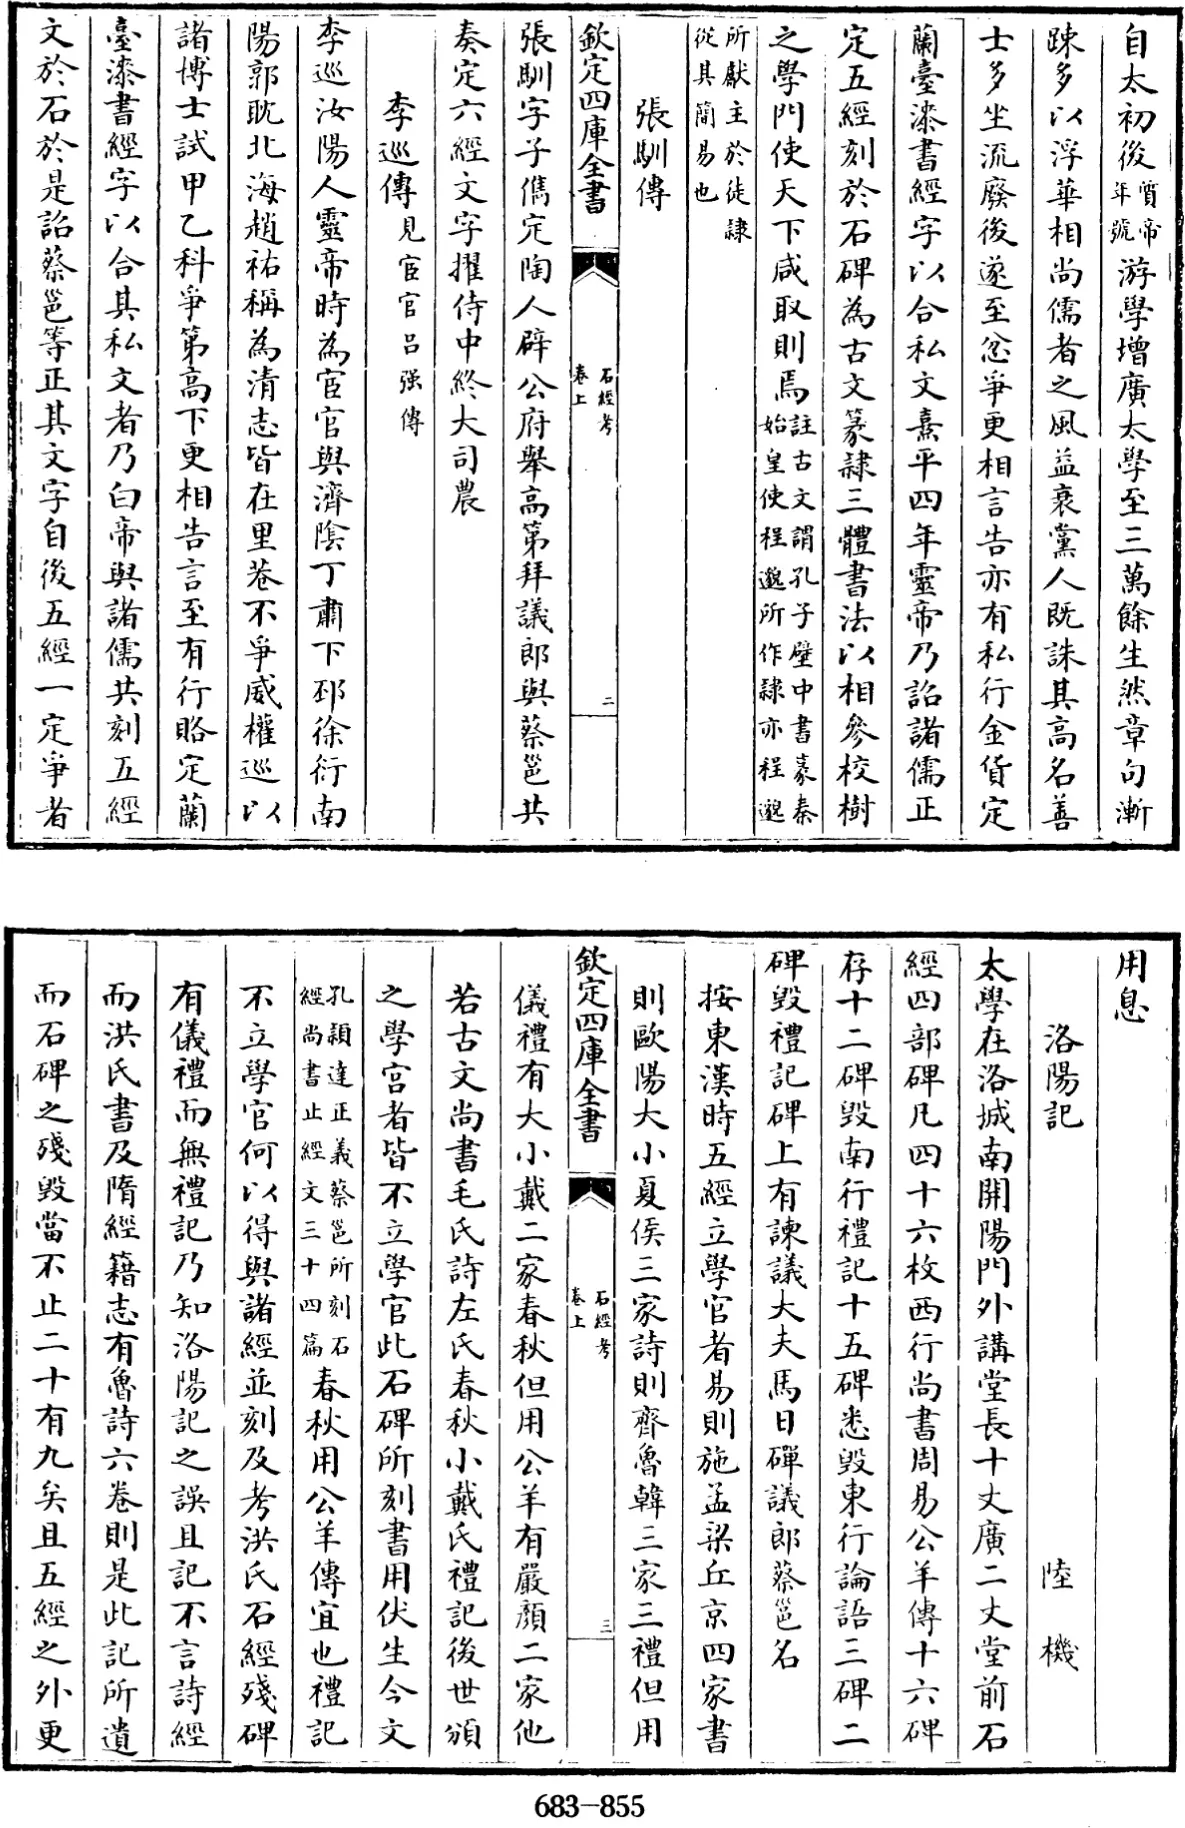 自太初後質帝年號游學增廣太學至三萬餘生然章句漸
踈多以浮華相尚儒者之風益衰黨人既誅其高名善
士多坐流廢後遂至忿爭更相言告亦有私行金貨定
蘭臺漆書經字以合私文熹平四年靈帝乃詔諸儒正
定五經刻於石碑為古文篆隸三體書法以相參校樹
之學門使天下咸取則焉註古文謂孔子壁中書篆秦始皇使程邈所作隸亦程邈
所獻主於徒隸從其簡易也
張馴傳
欽定四庫全書
石經考
卷上
二
張馴字子儁定陶人辟公府舉高第拜議郎與蔡邕共
奏定六經文字擢侍中終大司農
李巡傳見宦官呂强傳
李巡汝陽人靈帝時為宦官與濟陰丁肅下邳徐衍南
陽郭耽北海趙祐稱為清志皆在里巷不爭威權巡以
諸博士試甲乙科爭第高下更相告言至有行賂定蘭
臺漆書經字以合其私文者乃白帝與諸儒共刻五經
文於石於是詔蔡邕等正其文字自後五經一定爭者
用息
洛陽記 陸機
太學在洛城南開陽門外講堂長十丈廣二丈堂前石
經四部碑凡四十六枚西行尚書周易公羊傳十六碑
存十二碑毀南行禮記十五碑悉毀東行論語三碑二
碑毀禮記碑上有諫議大夫馬日磾議郎蔡邕名
按東漢時五經立學官者易則施孟梁丘京四家書
則歐陽大小夏侯三家詩則齊魯韓三家三禮但用
欽定四庫全書
石經考
卷上
三
儀禮有大小戴二家春秋但用公羊有嚴顏二家他
若古文尚書毛氏詩左氏春秋小戴氏禮記後世頒
之學宮者皆不立學官此石碑所刻書用伏生今文
孔穎達正義蔡邕所刻石經尚書止經文三十四篇春秋用公羊傳宜也禮記
不立學官何以得與諸經並刻及考洪氏石經殘碑
有儀禮而無禮記乃知洛陽記之誤且記不言詩經
而洪氏書及隋經籍志有魯詩六卷則是此記所遺
而石碑之殘毀當不止二十有九矣且五經之外更
683-855